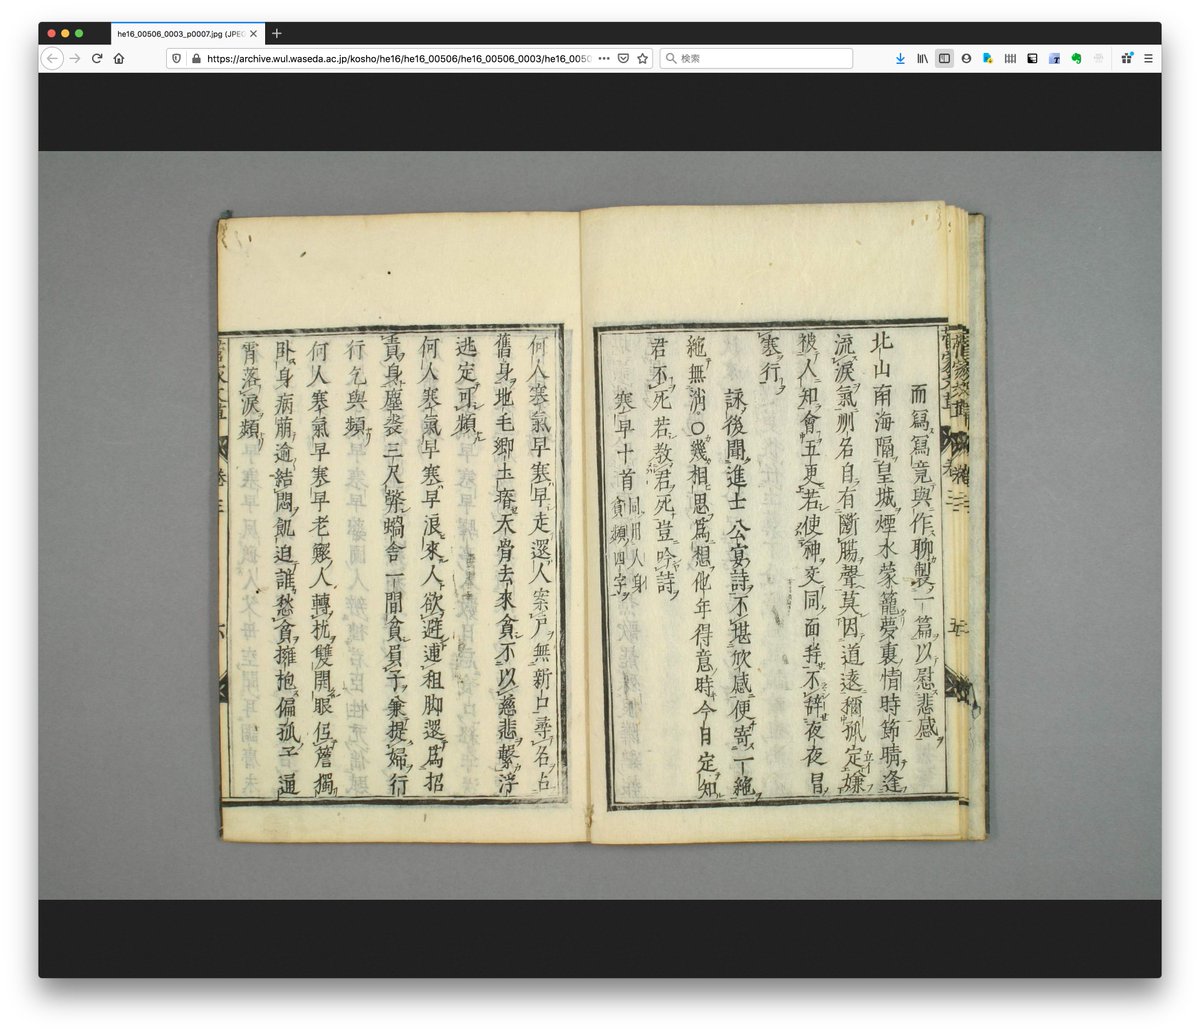 he16_00506_0003_p0007.jpg (JPEG
https://archive.wul.waseda.ac.jp/kosho/he16/he16_00506/he16_00506_0003/he16_0050
検索
菅家文草 卷三 五
而寫寫竟與作聊製一篇以慰悲感
北山南海隔皇城煙水蒙籠夢裏情時節晴逢
流淚氣州名自有斷腸聲莫因道遠稱孤定嫌
被人知會五更若使神交同面拜不辭夜夜冒
寒行
詠後聞進士公宴詩不堪欣感便寄一絶
絶無消〇幾相思爲想他年得意時今日定知
君不死若教君死豈吟詩
寒早十首 同用人身
貧頻四字
何人寒氣早寒早走還人案戶無新口尋名占
舊身地毛鄕土瘠天骨去來貧不以慈悲繫浮
逃定可頻
何人寒氣早寒早浪來人欲避逋租脚還爲招
責身鹿裘三尺弊蝸舍一間貧負子兼提婦行
行乞與頻
何人寒氣早寒早老鰥人轉枕雙開眼低簷獨
臥身病萠逾結悶飢迫誰愁貧擁抱偏孤子通
宵落淚頻